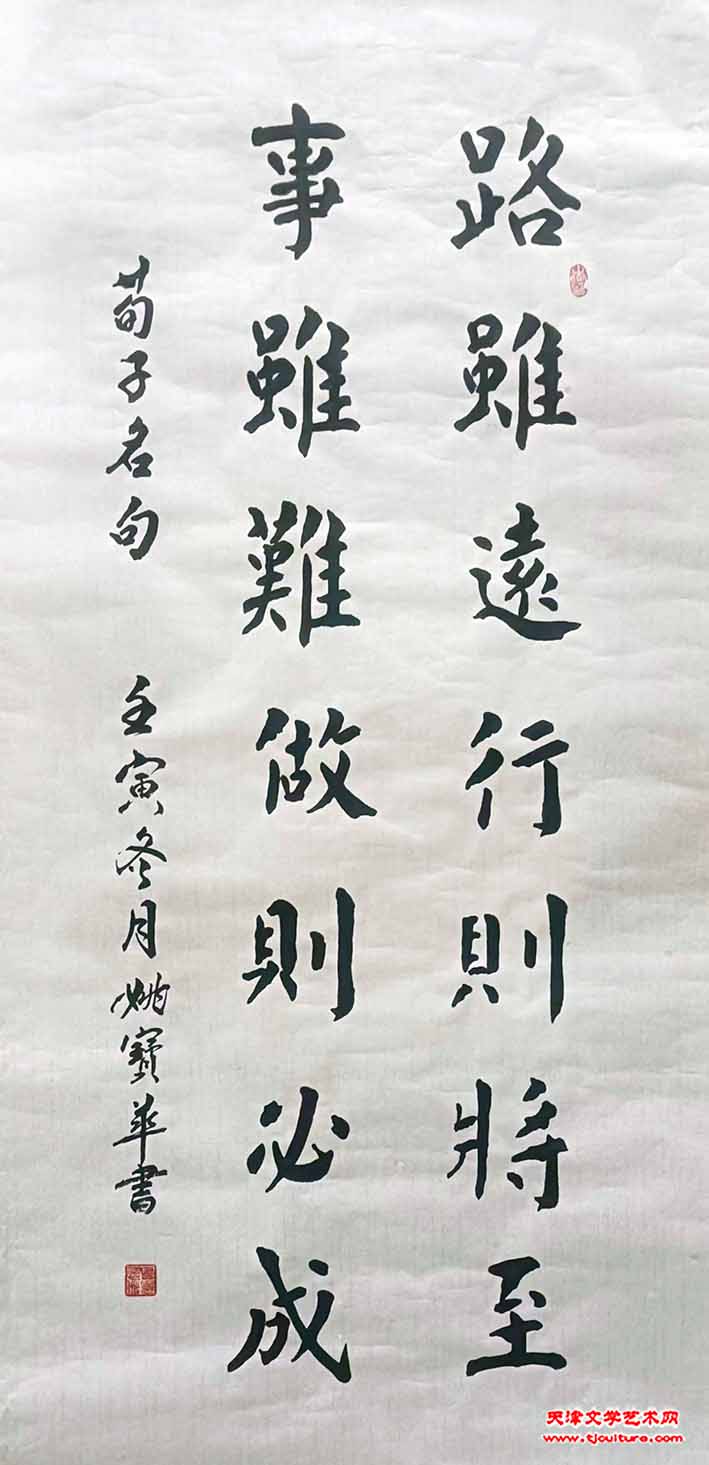 路雖遠行則將至
事雖難做則必成
荀子名句 壬寅冬月姚寶華書
天津文学艺术网
www.tjculture.com